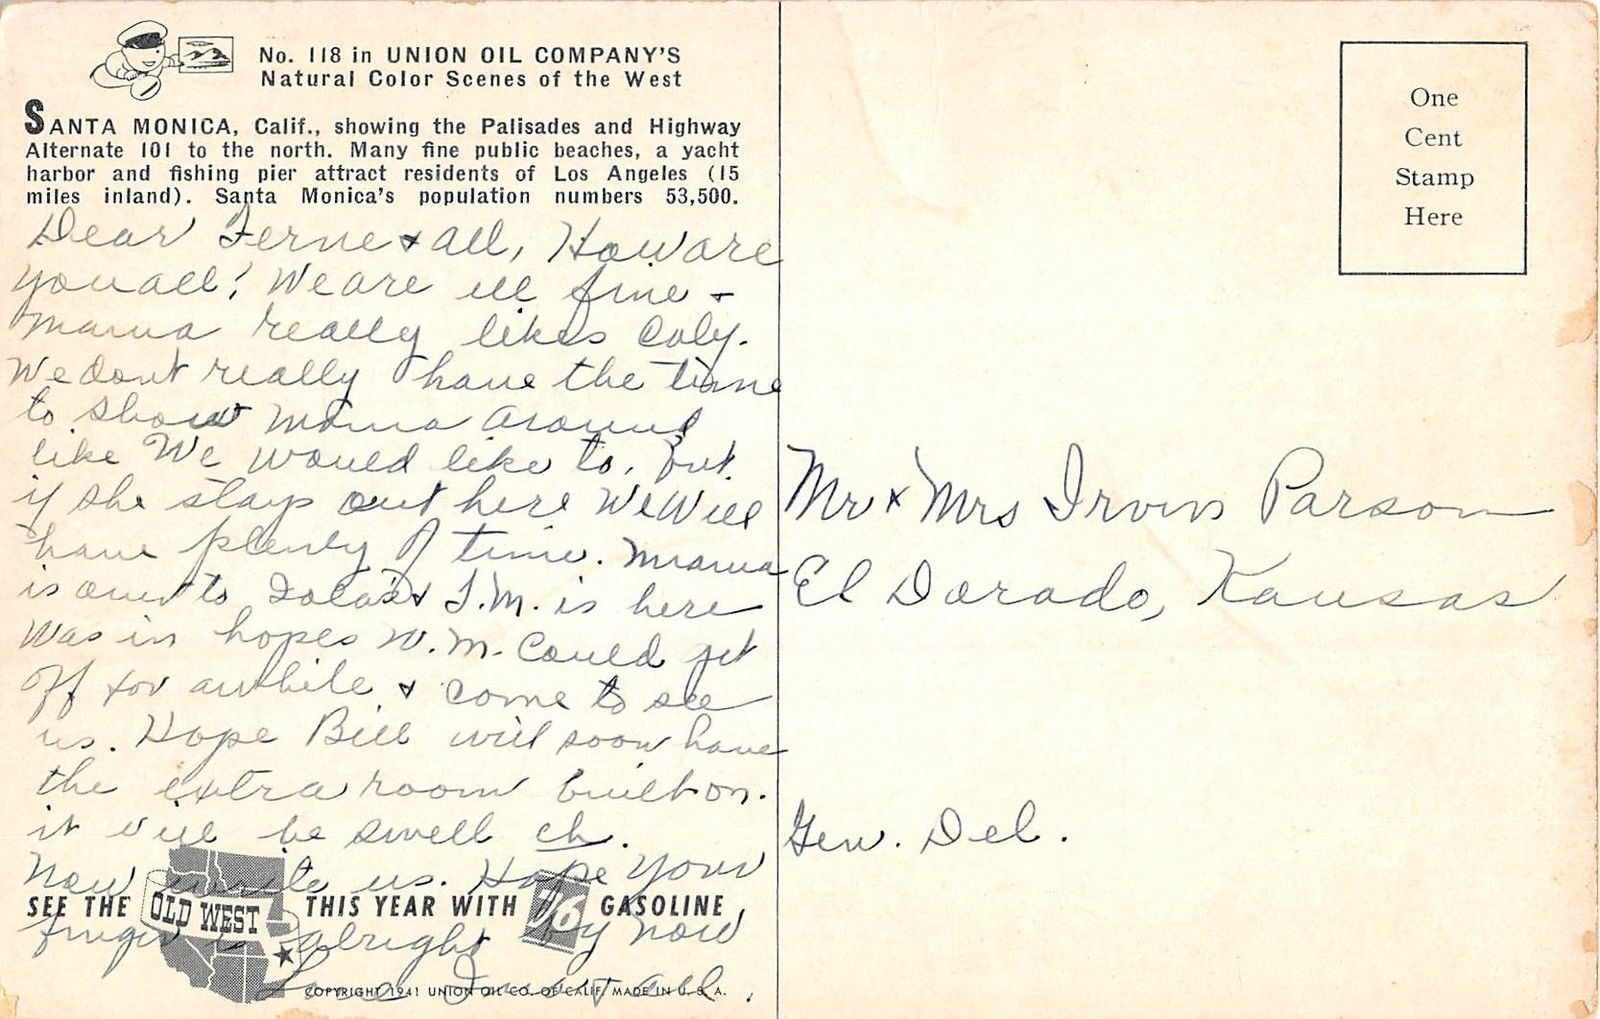 No. 118 in UNION OIL COMPANY'S
Natural Color Scenes of the West
SANTA MONICA, Calif., showing the Palisades and Highway
Alternate 101 to the north. Many fine public beaches, a yacht
harbor and fishing pier attract residents of Los Angeles (15
miles inland). Santa Monica's population numbers 53,500.
Dear Ferne & all, How are
you all? We are all fine -
Mama really likes Caly.
We dont really have the time
to show Mama around
like We would like to. But
if she stays out here We Will
have plenty of time. Mama
is over to Iola's & J.M. is here
Was in hopes W.M. Could get
Off for awhile & come to see
us. Hope Bill will soon have
the extra room built on.
it will be swell eh.
Now write us. Hope Your
finger is alright by now
Love & all.
One
Cent
Stamp
Here
Mr & Mrs Irvin Parson
El Dorado, Kansas
Gen. Del.
SEE THE OLD WEST THIS YEAR WITH 76 GASOLINE
COPYRIGHT 1941 UNION OIL CO. OF CALIF. MADE IN U. S. A.